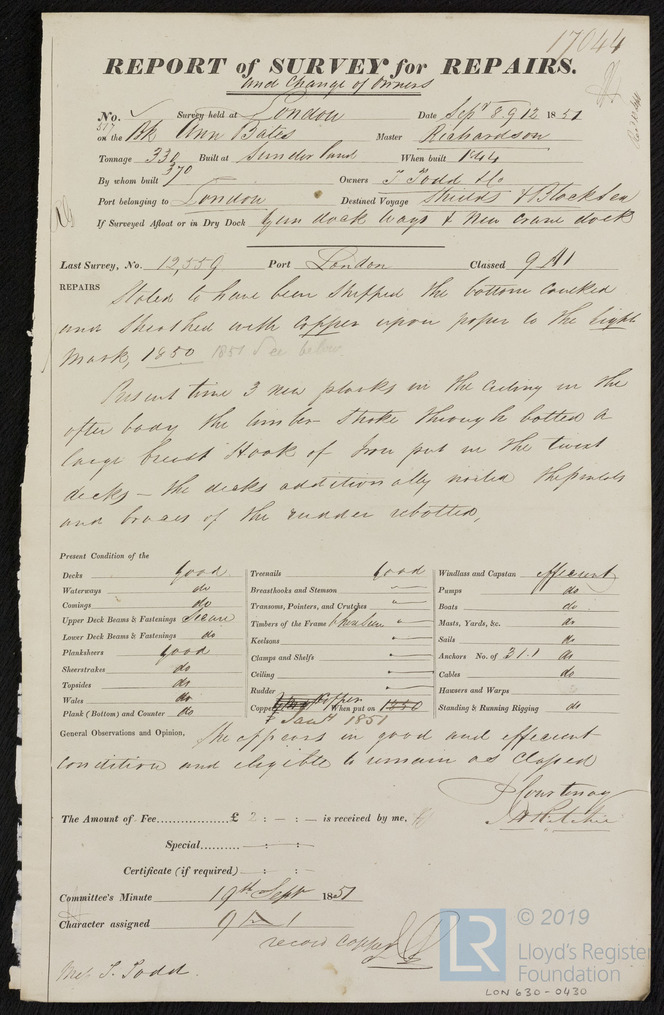 17044
REPORT of SURVEY for REPAIRS.
and Change of Owners
No. Survey held at London Date Sepr 8 9 12 1851
517
on the Bk Ann Bates Master Richardson
Tonnage 330 Built at Sunderland When built 1844
370
By whom built Owners T. Todd & Co
Port belonging to London Destined Voyage Shields & Black Sea
If Surveyed Afloat or in Dry Dock Gun dock ways & New Crane dock
Last Survey, No. 12,559 Port London Classed 9 A 1
REPAIRS Stated to have been stripped the bottom caulked
and sheathed with copper upon paper to the light
mark, 1850 1851 See below
Present time 3 new planks in the ceiling in the
after body the limber stroke through bolted a
large breast Hook of Iron put in the twixt
decks – the decks additionally nailed the pintels
and braces of the rudder rebolted,
Present Condition of the
Decks good
Waterways do
Comings do
Upper Deck Beams & Fastenings Secure
Lower Deck Beams & Fastenings do
Planksheers good
Sheerstrakes do
Topsides do
Wales do
Plank (Bottom) and Counter do
Treenails Good
Breasthooks and Stemson "
Transoms, Pointers, and Crutches "
Timbers of the Frame where seen "
Keelsons "
Clamps and Shelfs "
Ceiling "
Rudder "
Copper Copper When put on 1850
Jany 1851
Windlass and Capstan efficient
Pumps do
Boats do
Masts, Yards, &c. do
Sails do
Anchors No. of 3.1.1 do
Cables do
Hawsers and Warps
Standing & Running Rigging do
General Observations and Opinion, She appears in good and efficient
condition and eligible to remain as classed
Courtenay
Ritchie
The Amount of Fee £ 2 : – : – is received by me,
Special – : – : –
Certificate (if required) – : – : –
Committee's Minute 19th Sept 1851
Character assigned 9 A 1
record copper
Mess T. Todd.
LR
© 2019
Lloyd's Register
Foundation
LON 630-0430